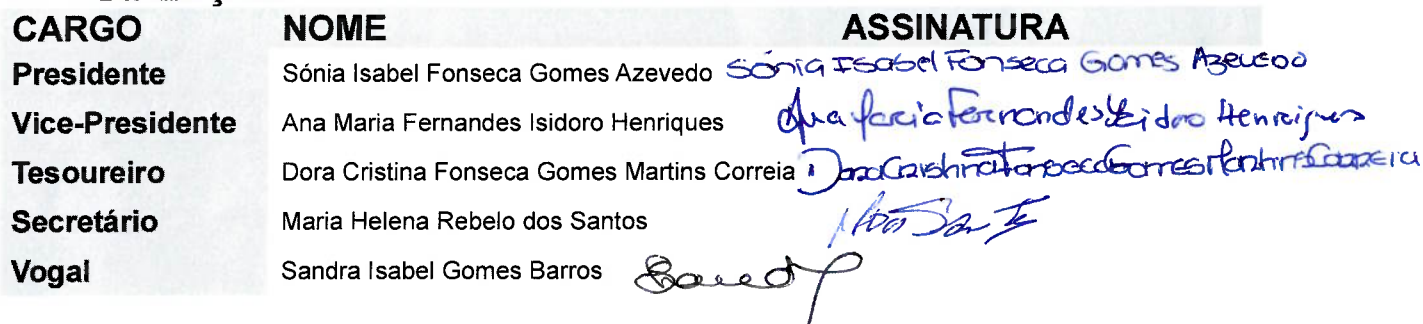 CARGO NOME ASSINATURA
Presidente Sónia Isabel Fonseca Gomes Azevedo Sónia Isabel Fonseca Gomes Azevedo
Vice-Presidente Ana Maria Fernandes Isidoro Henriques Ana Maria Fernandes Isidoro Henriques
Tesoureiro Dora Cristina Fonseca Gomes Martins Correia Dora Cristina Fonseca Gomes Martins Correia
Secretário Maria Helena Rebelo dos Santos
Vogal Sandra Isabel Gomes Barros